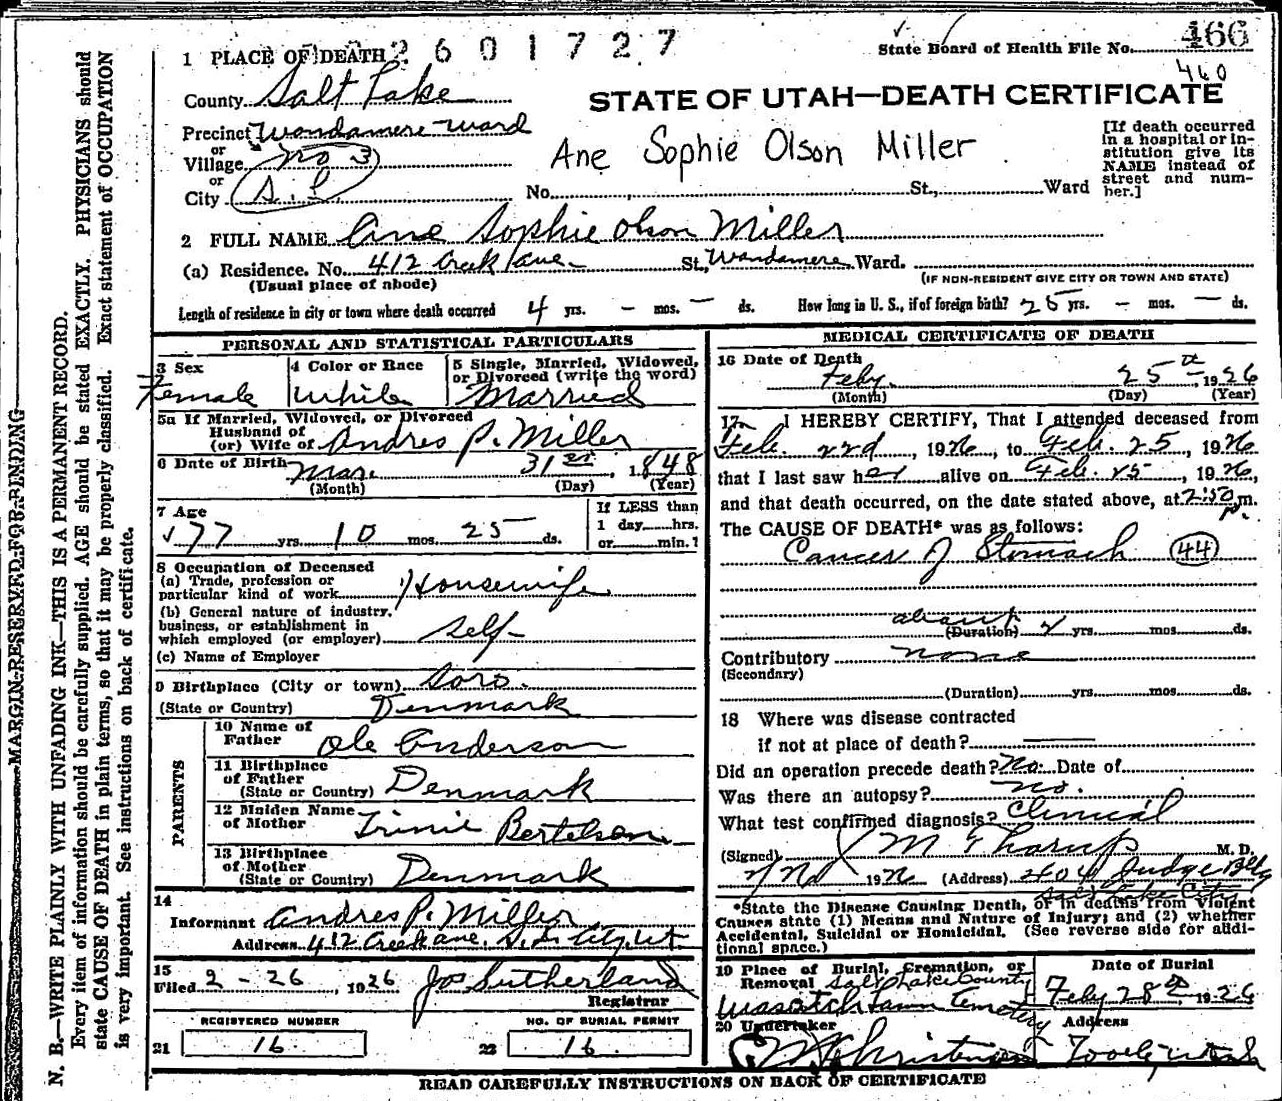 MARGIN RESERVED FOR BINDING
N. B.—WRITE PLAINLY WITH UNFADING INK—THIS IS A PERMANENT RECORD.
Every item of information should be carefully supplied. AGE should be stated EXACTLY. PHYSICIANS should
state CAUSE OF DEATH in plain terms, so that it may be properly classified. Exact statement of OCCUPATION
is very important. See instructions on back of certificate.
1 PLACE OF DEATH 2601727
State Board of Health File No. 466
460
County Salt Lake
STATE OF UTAH—DEATH CERTIFICATE
Precinct Wandamere Ward
or
Village No 3
or
City S. L
Ane Sophie Olson Miller
[If death occurred
in a hospital or in-
stitution give its
NAME instead of
street and num-
ber.]
No. St., Ward
2 FULL NAME Ane Sophie Olson Miller
(a) Residence. No. 412 Creek ave St., Wandamere Ward.
(Usual place of abode) (IF NON-RESIDENT GIVE CITY OR TOWN AND STATE)
Length of residence in city or town where death occurred 4 yrs. – mos. – ds. How long in U. S., if of foreign birth? 25 yrs. – mos. – ds.
PERSONAL AND STATISTICAL PARTICULARS
3 Sex
Female
4 Color or Race
White
5 Single, Married, Widowed,
or Divorced (write the word)
Married
5a If Married, Widowed, or Divorced
Husband of
(or) Wife of Andres P. Miller
6 Date of Birth Mar. 31st, 1848
(Month) (Day) (Year)
7 Age
77 yrs. 10 mos. 25 ds.
If LESS than
1 day hrs.
or min.?
8 Occupation of Deceased
(a) Trade, profession or
particular kind of work Housewife
(b) General nature of industry,
business, or establishment in
which employed (or employer) Self
(c) Name of Employer
9 Birthplace (City or town) Soro
(State or Country) Denmark
PARENTS
10 Name of
Father Ole Anderson
11 Birthplace
of Father
(State or Country) Denmark
12 Maiden Name
of Mother Trinie Bertelson
13 Birthplace
of Mother
(State or Country) Denmark
14
Informant Andres P. Miller
Address 412 Creek ave. S. L. City, Ut.
15
Filed 2 - 26, 1926 Jos Sutherland
Registrar
REGISTERED NUMBER
21 16
NO. OF BURIAL PERMIT
22 16
MEDICAL CERTIFICATE OF DEATH
16 Date of Death
Feby. 25th 1926
(Month) (Day) (Year)
17 I HEREBY CERTIFY, That I attended deceased from
Feb. 22d, 1926, to Feb. 25, 1926,
that I last saw her alive on Feb. 25, 1926,
and that death occurred, on the date stated above, at 2:50 P m.
The CAUSE OF DEATH* was as follows:
Cancer of Stomach (44)
about
(Duration) yrs. mos. ds.
Contributory none
(Secondary)
(Duration) yrs. mos. ds.
18 Where was disease contracted
if not at place of death?
Did an operation precede death? No. Date of
Was there an autopsy? no.
What test confirmed diagnosis? Clinical
(Signed) M. D.
1926 (Address) 404 Judge Bldg
Salt Lake City
*State the Disease Causing Death, or in deaths from Violent
Causes state (1) Means and Nature of Injury; and (2) whether
Accidental, Suicidal or Homicidal. (See reverse side for addi-
tional space.)
19 Place of Burial, Cremation, or
Removal Salt Lake County
Wasatch Lawn Cemetery
Date of Burial
Feby 28th, 1926
20 Undertaker
Christensen
Address
Tooele, Utah
READ CAREFULLY INSTRUCTIONS ON BACK OF CERTIFICATE